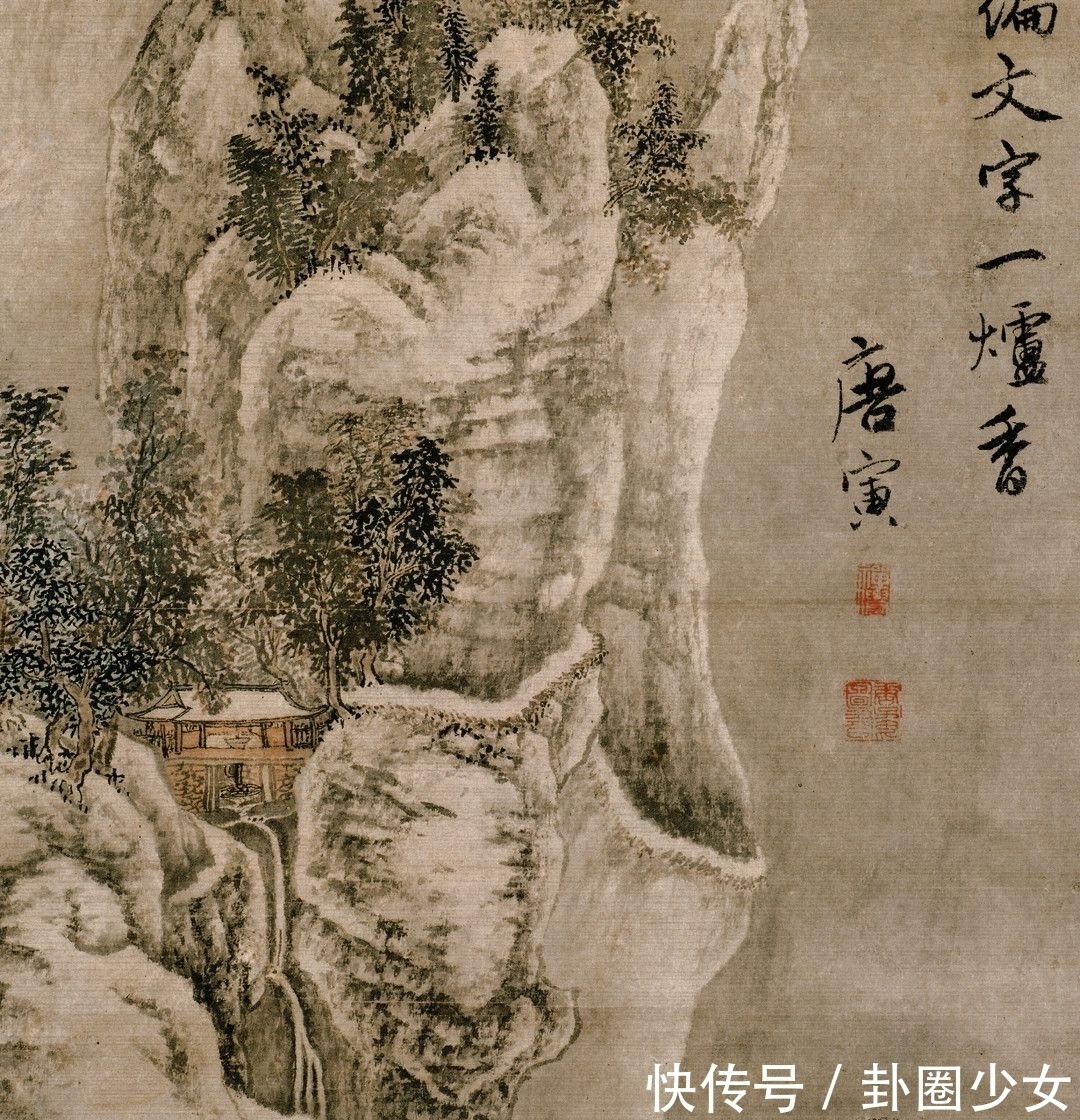 编文字一爐香
唐寅
快传号 / 卦圈少女